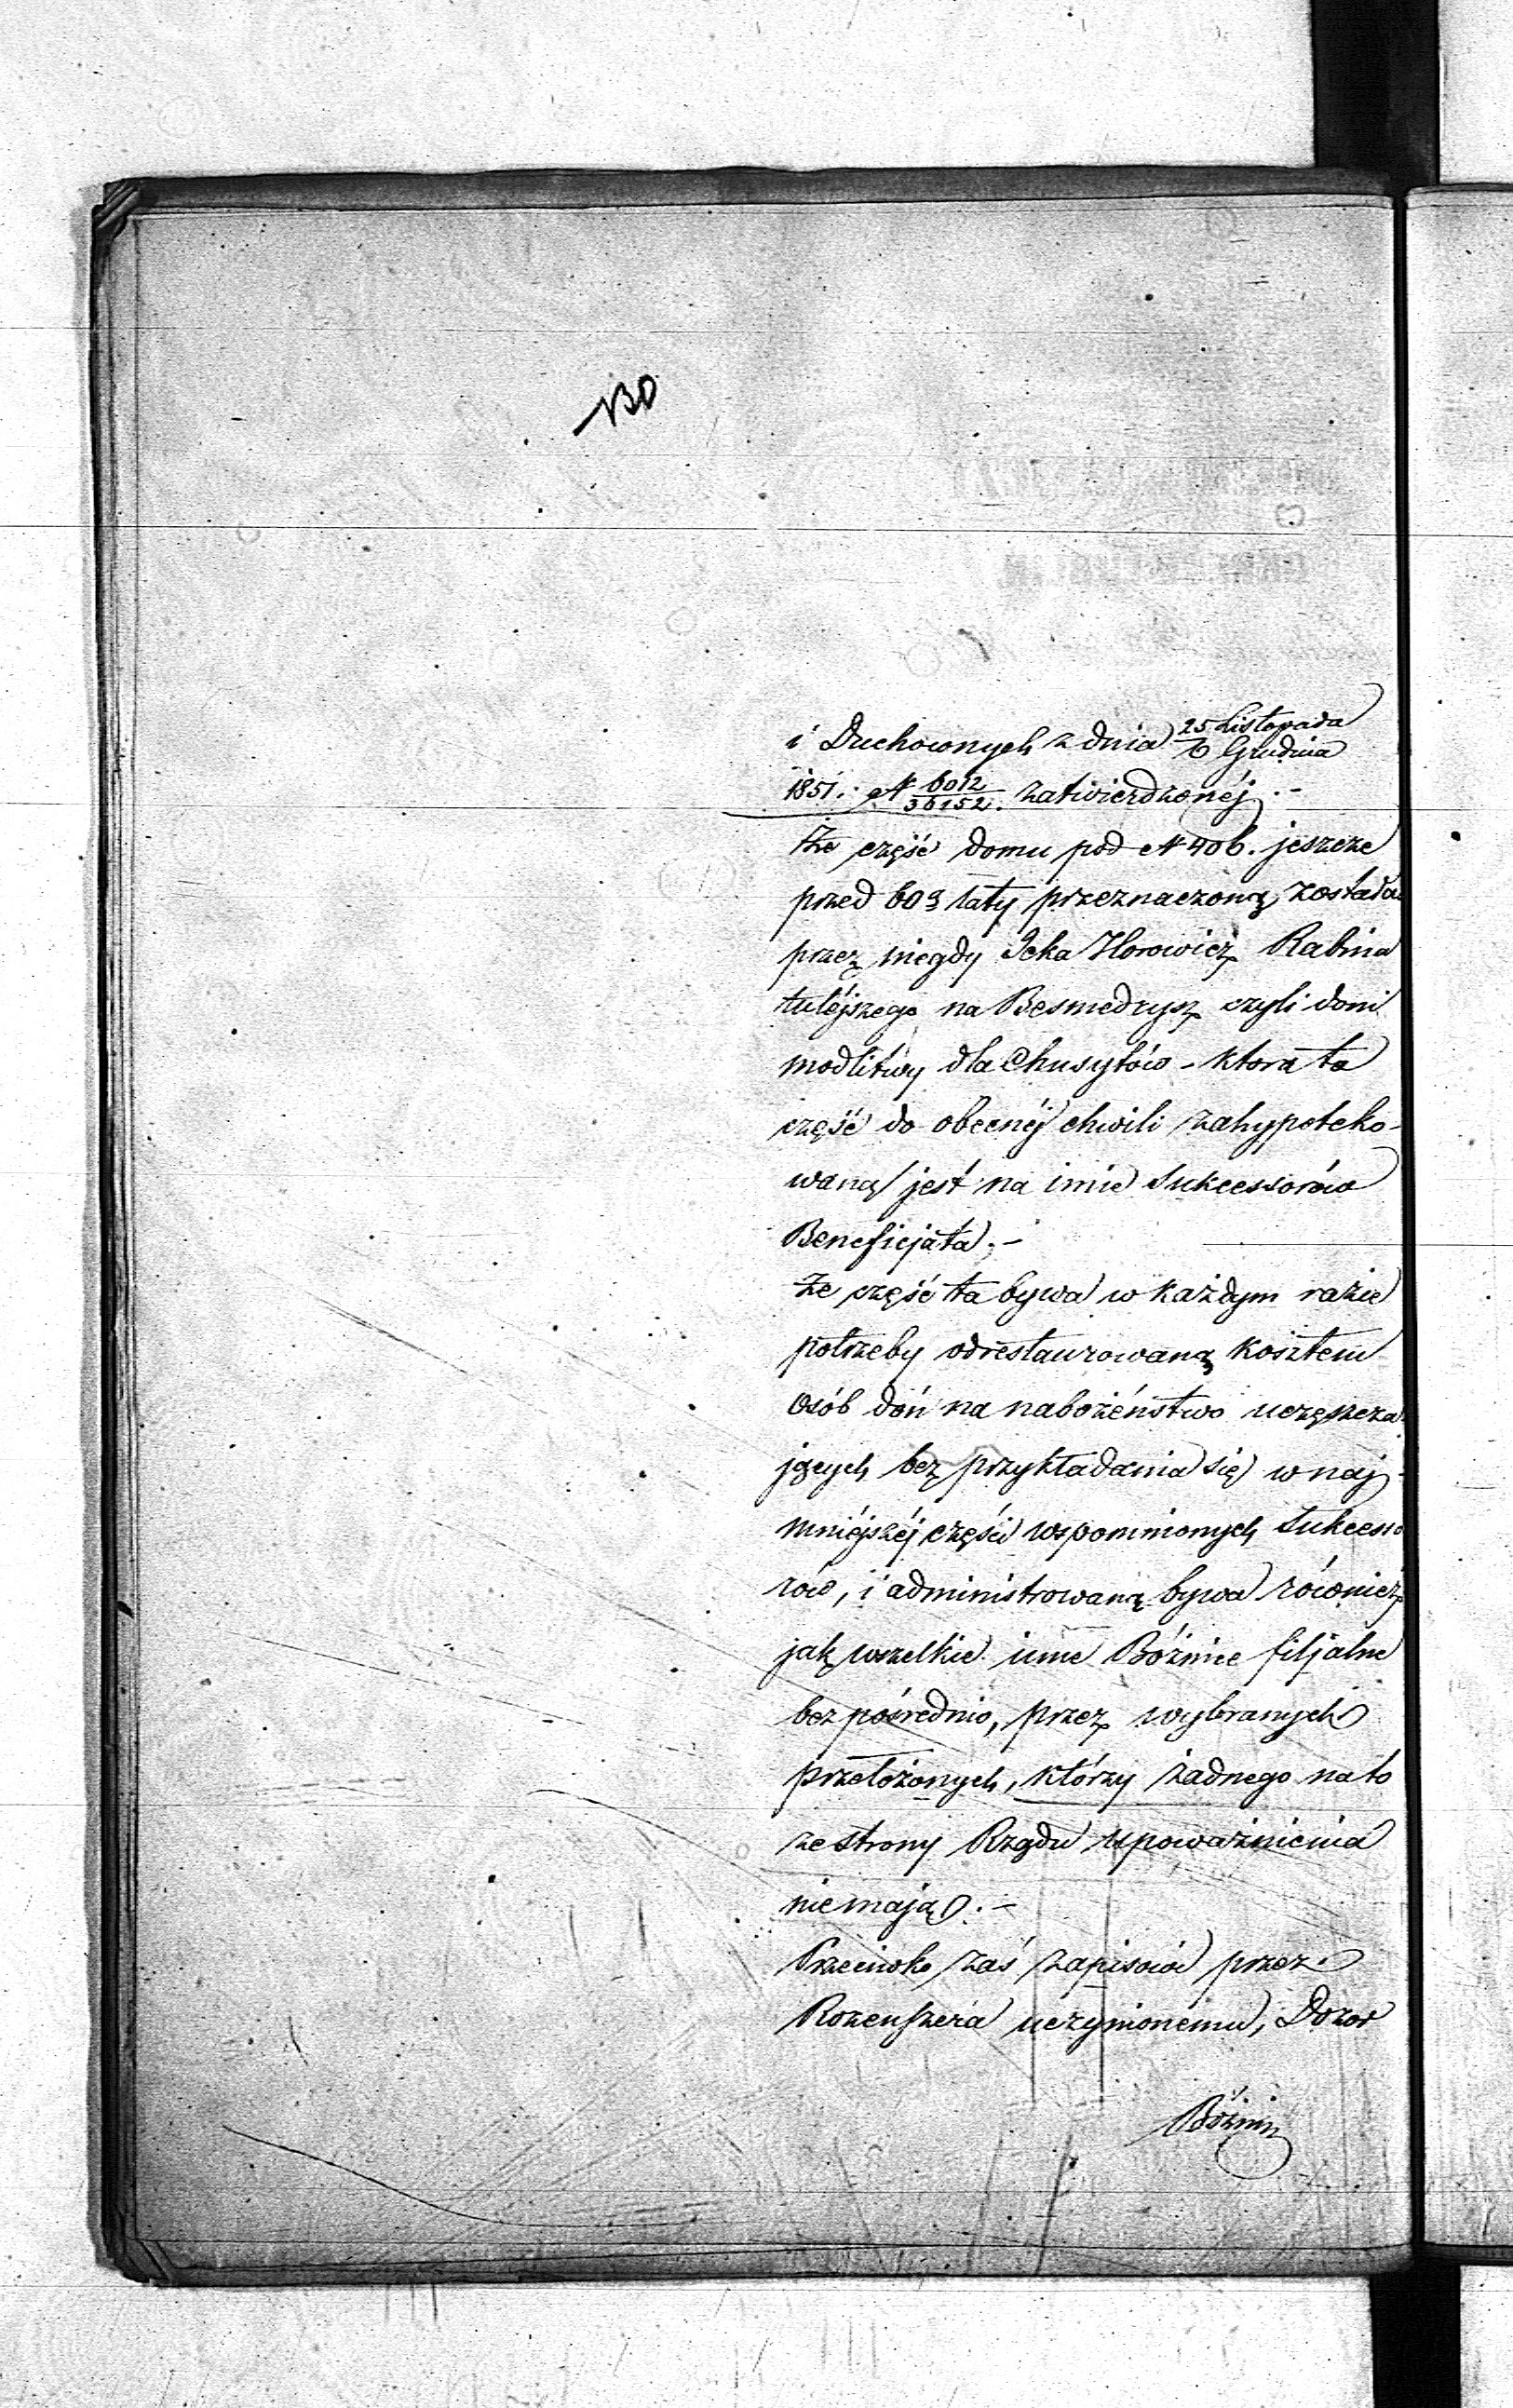 130
i Duchownych z dnia 25 Listopada / 6 Grudnia
1851. N 6012/36152. zatwierdzonéj.-
Że część domu pod N 406. jeszcze
przed 60 laty przeznaczoną została
przez niegdy Icka Horowicz Rabina
tutéjszego na Besmedrysz czyli dom
modlitwy dla Chusytów - ktora to
część do obecnéj chwili zahypoteko-
waną jest na imie Sukcessorów
Beneficjata.-
Że część ta bywa w każdym razie
potrzeby odrestaurowaną kosztem
osób doń na nabożeństwo uczęszcza-
jących bez przykładania się w naj-
mniéjszéj części wspomnionych Sukcesso
rów, i administrowaną bywa równiez
jak wszelkie inne Bóżnice filjalne
bezpośrednio, przez wybranych
przełożonych, którzy żadnego na to
ze strony Rządu upoważnienia
nie mają.-
Przeciwko zaś zapisowi przez
Rozenszera uczynionemu, Dozor
Bóżnin